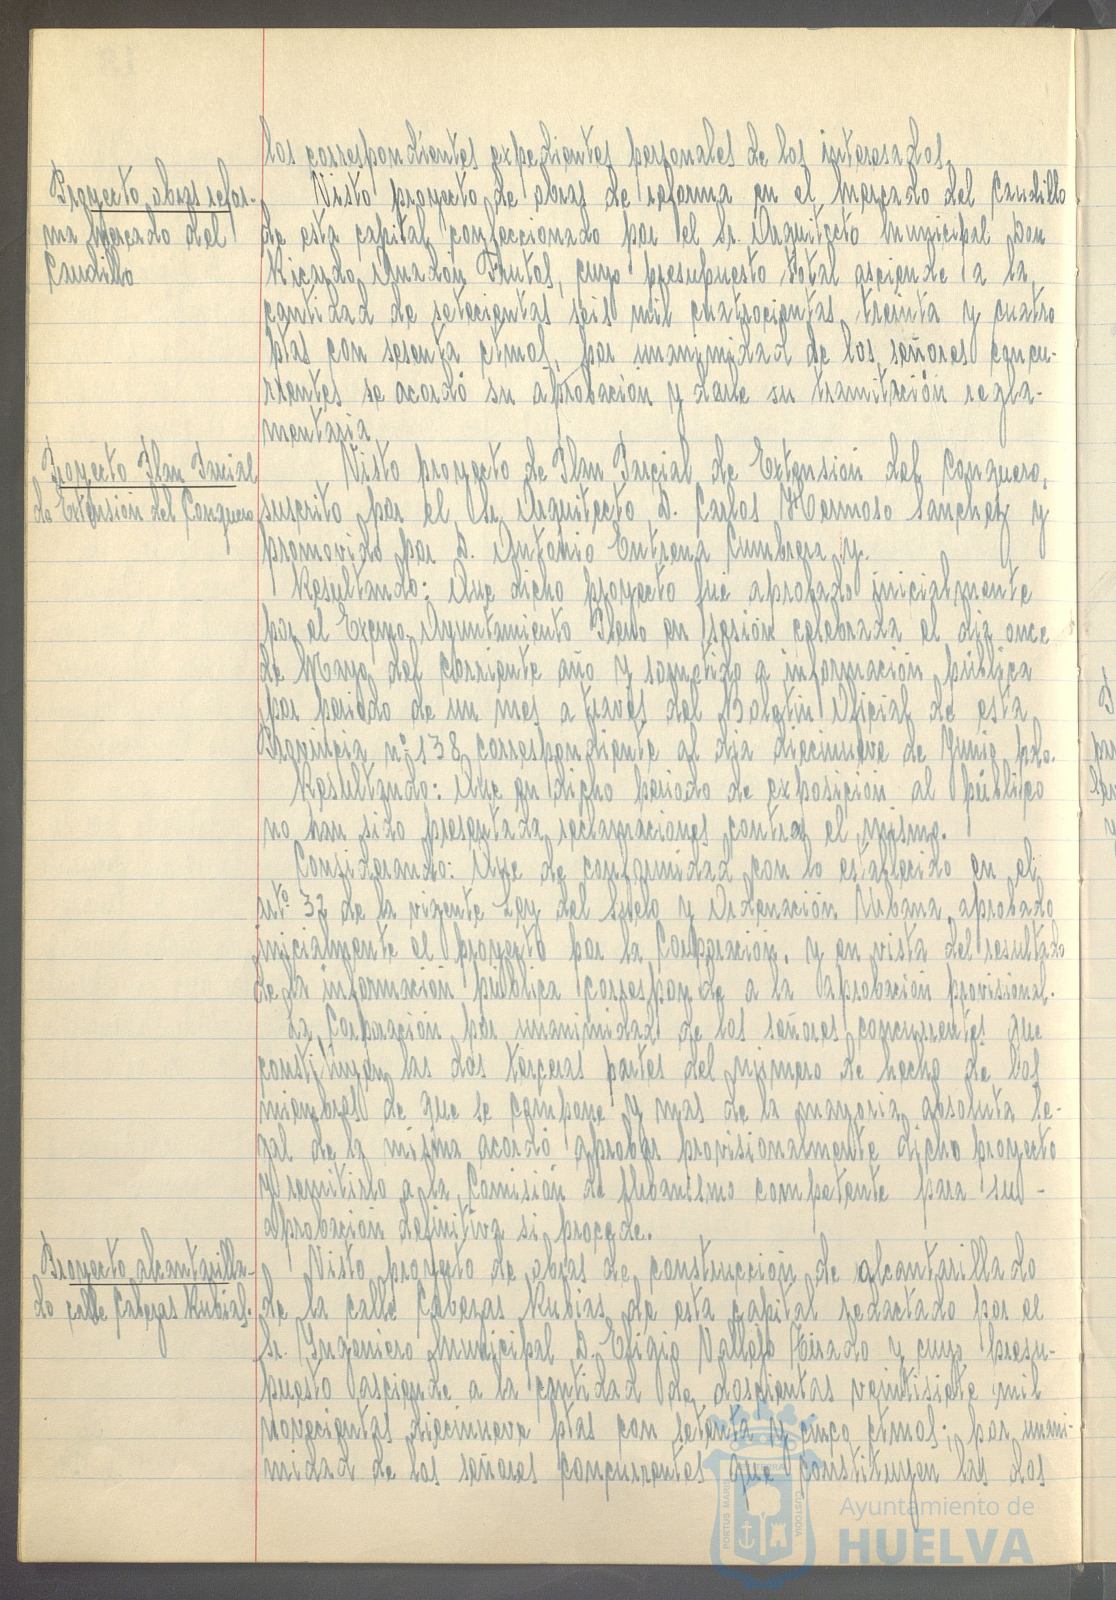 los correspondientes expedientes personales de los interesados.
Proyecto obras refor-
ma Mercado del
Caudillo
Visto proyecto de obras de reforma en el Mercado del Caudillo
de esta capital confeccionado por el Sr. Arquitecto Municipal Don
Ricardo Anadón Frutos, cuyo presupuesto total asciende a la
cantidad de setecientas seis mil cuatrocientas treinta y cuatro
ptas con sesenta ctmos, por unanimidad de los señores concu-
rrentes se acordó su aprobación y darle su tramitación regla-
mentaria.
Proyecto Plan Parcial
de Extensión del Conquero
Visto proyecto de Plan Parcial de Extensión del Conquero,
suscrito por el Sr. Arquitecto D. Carlos Hermoso Sanchez y
promovido por D. Antonio Entrena Cumbrera y.
Resultando: Que dicho proyecto fué aprobado inicialmente
por el Excmo. Ayuntamiento Pleno en sesión celebrada el día once
de Mayo del corriente año y sometido a información pública
por periodo de un mes a traves del Boletin Oficial de esta
Provincia nº 138 correspondiente al dia diecinueve de Junio pdo.
Resultando: Que en dicho periodo de exposición al público
no han sido presentada reclamaciones contra el mismo.
Considerando: Que de conformidad con lo establecido en el
artº 32 de la vigente Ley del Suelo y Ordenación Urbana, aprobado
inicialmente el proyecto por la Corporación, y en vista del resultado
de la información pública corresponde a la aprobación provisional.
La Corporación por unanimidad de los señores concurrentes que
constituyen las dos terceras partes del número de hecho de los
miembros de que se compone y mas de la mayoria absoluta le-
gal de la misma acordó aprobar provisionalmente dicho proyecto
y remitirlo a la Comisión de Urbanismo competente para su -
aprobación definitiva si procede.
Proyecto alcantarilla-
do calle Cabezas Rubias.
Visto proyecto de obras de construcción de alcantarillado
de la calle Cabezas Rubias, de esta capital redactado por el
Sr. Ingeniero Municipal D. Eligio Vallejo Tirado y cuyo presu-
puesto asciende a la cantidad de doscientas veintisiete mil
novecientas diecinueve ptas con setenta y cinco ctmos; por unani-
midad de los señores concurrentes que constituyen las dos
PORTUS MARIS
TERRAE
CUSTODIA
Ayuntamiento de
HUELVA